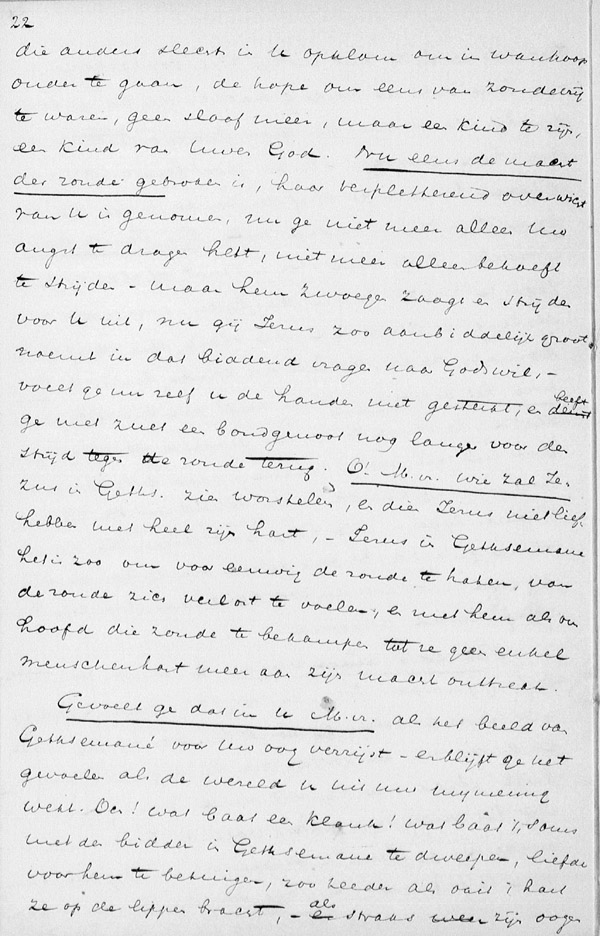 22
die anders slechts in U opklom om in wanhoop
onder te gaan, de hope om eens van zonde vrij
te waren, geen slaaf meer, maar een kind te zijn,
een kind van Uwen God. Nu eens de macht
der zonde gebroken is, haar verpletterend overwicht
van U is genomen, nu ge niet meer alleen Uw
angst te dragen hebt, niet meer alleen behoeft
te strijden - maar hem zwoegen zaagt en strijden
voor U uit, nu gij Jezus zoo aanbiddelijk groot
noemt in dat biddend vragen naar Gods wil, -
voelt ge nu zelf U de handen niet gesterkt, en heeft
ge niet zulk een bondgenoot nog langer voor den
strijd tegen de zonde terug. O! M. vr. wie zal Je-
zus in Geths. zien worstelen, en dien Jezus niet lief-
hebben met heel zijn hart, - Jezus in Gethsemane
het is zoo om voor eeuwig de zonde te haten, van
de zonde zich verlost te voelen, en met hem als ons
hoofd die zonde te bekampen tot ze geen enkel
menschenhart meer aan zijn macht onttrekt.
Gevoelt ge dat in U M. vr. als het beeld van
Gethsemané voor Uw oog verrijst - en blijft ge het
gevoelen als de wereld U uit uw mijmering
wekt. Och! wat baat een klank! wat baat 't, soms
met den bidder in Gethsemane te dweepen, liefde
voor hem te betuigen, zoo teeder als ooit 't hart
ze op de lippen bracht, - als straks zijn oogen